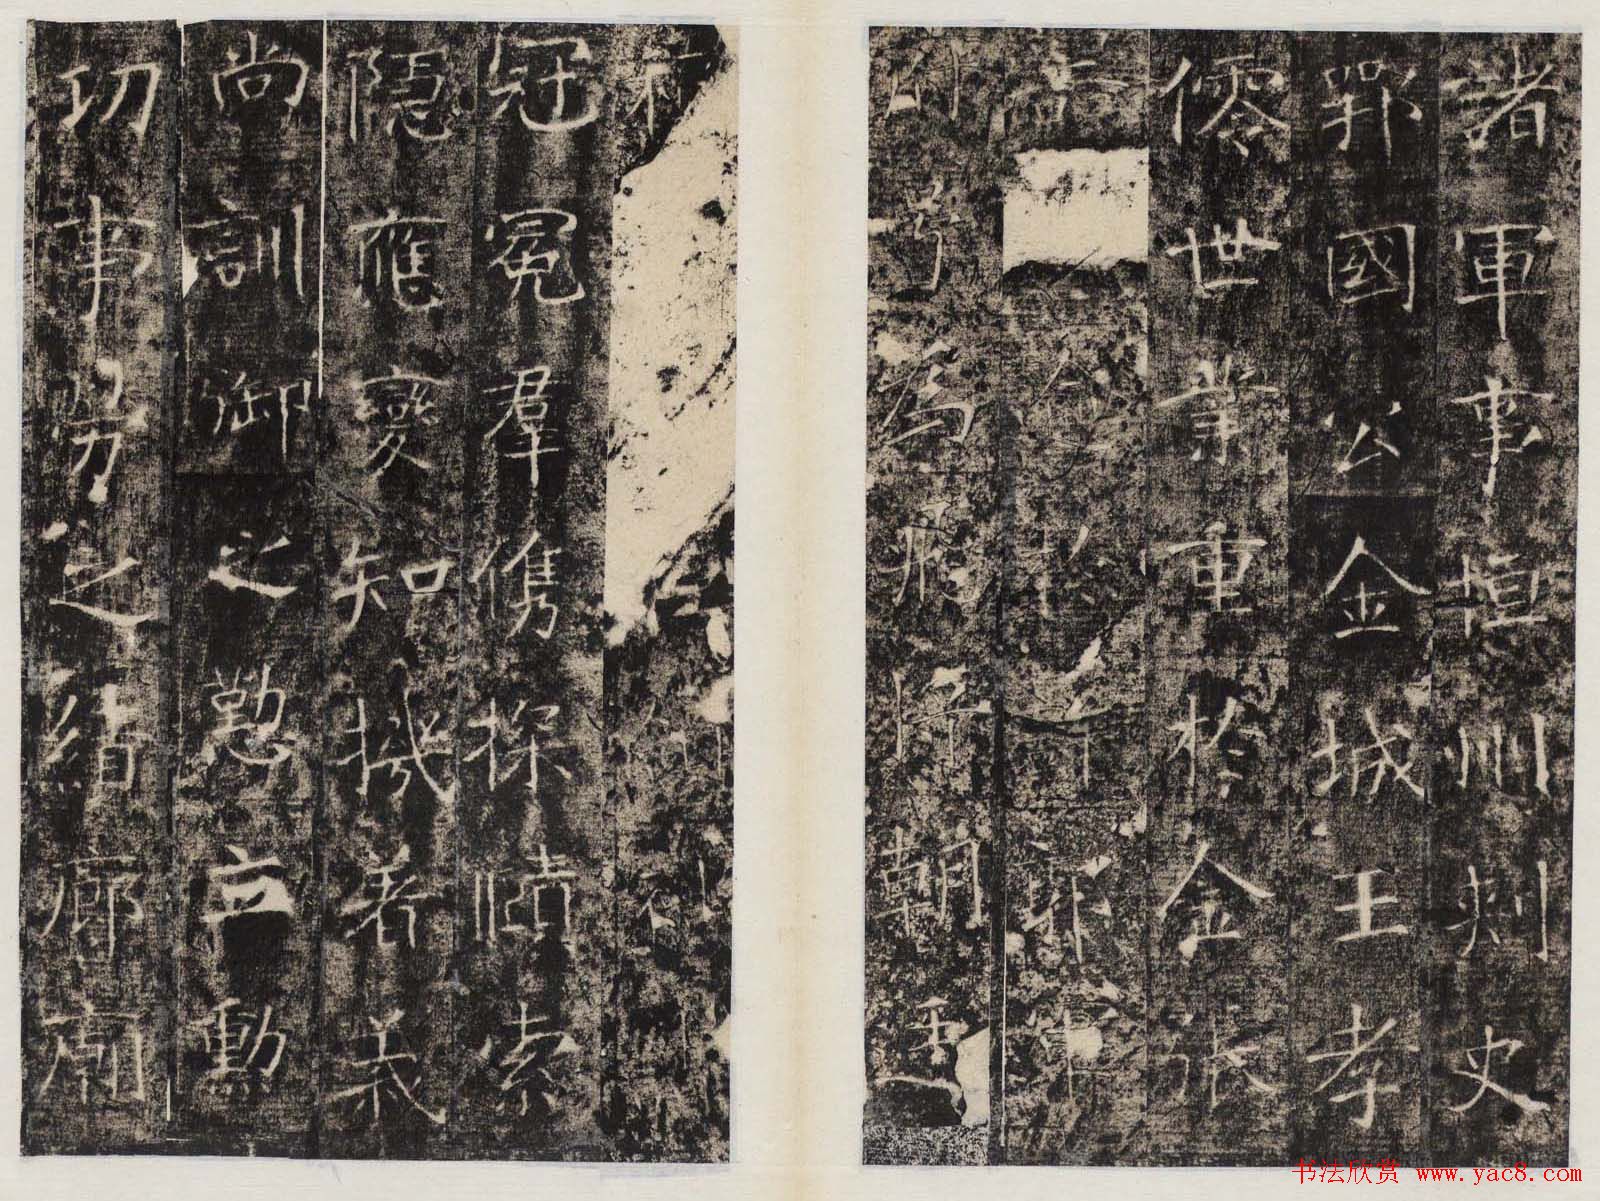 諸軍事恒州刺史
鄂國公金城王孝
僊世業重於金張
於許郭軍
府号為飛將朝廷
冠冕羣儁探賾索
隱應變知機著義
尚訓御之懃立動
功事勞之績廊廟
书法欣赏 www.yac8.com